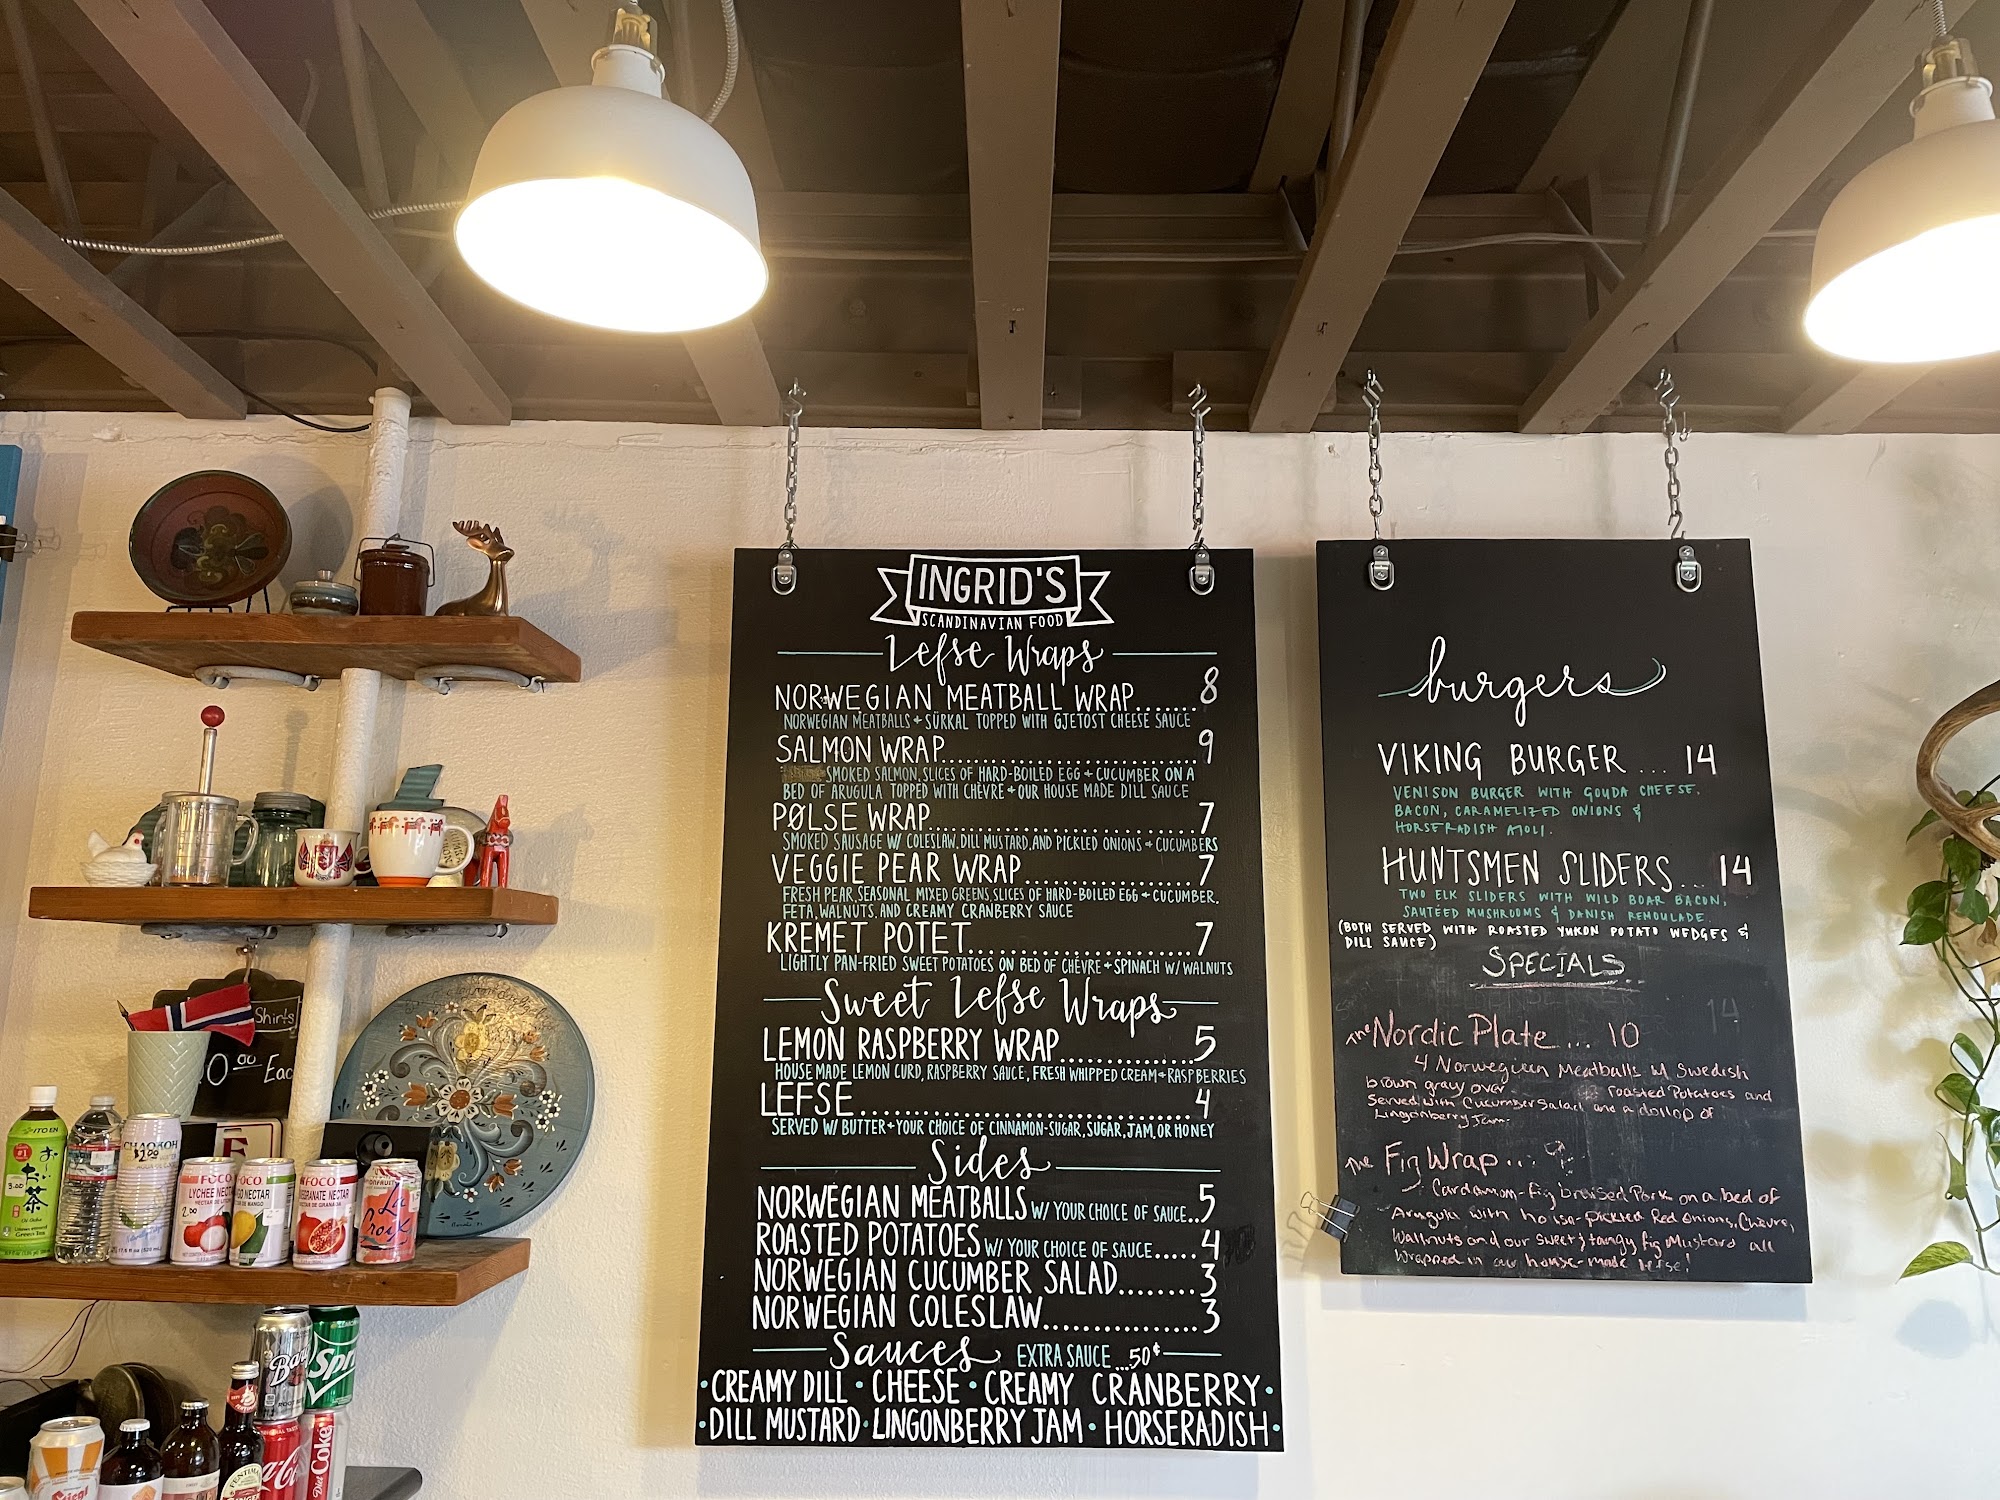 INGRID'S
SCANDINAVIAN FOOD
Lefse Wraps
NORWEGIAN MEATBALL WRAP.......8
NORWEGIAN MEATBALLS + SÜRKAL TOPPED WITH GJETOST CHEESE SAUCE
SALMON WRAP..............................9
SMOKED SALMON, SLICES OF HARD-BOILED EGG + CUCUMBER ON A
BED OF ARUGULA TOPPED WITH CHÈVRE + OUR HOUSE MADE DILL SAUCE
PØLSE WRAP................................7
SMOKED SAUSAGE W/ COLESLAW, DILL MUSTARD, AND PICKLED ONIONS + CUCUMBERS
VEGGIE PEAR WRAP....................7
FRESH PEAR, SEASONAL MIXED GREENS, SLICES OF HARD-BOILED EGG + CUCUMBER,
FETA, WALNUTS, AND CREAMY CRANBERRY SAUCE
KREMET POTET..........................7
LIGHTLY PAN-FRIED SWEET POTATOES ON BED OF CHÈVRE + SPINACH W/ WALNUTS
Sweet Lefse Wraps
LEMON RASPBERRY WRAP...............5
HOUSE MADE LEMON CURD, RASPBERRY SAUCE, FRESH WHIPPED CREAM + RASPBERRIES
LEFSE.....................................4
SERVED W/ BUTTER + YOUR CHOICE OF CINNAMON-SUGAR, SUGAR, JAM, OR HONEY
Sides
NORWEGIAN MEATBALLS W/ YOUR CHOICE OF SAUCE..5
ROASTED POTATOES W/ YOUR CHOICE OF SAUCE.....4
NORWEGIAN CUCUMBER SALAD........3
NORWEGIAN COLESLAW................3
Sauces EXTRA SAUCE ...50¢
• CREAMY DILL • CHEESE • CREAMY CRANBERRY •
• DILL MUSTARD • LINGONBERRY JAM • HORSERADISH •
burgers
VIKING BURGER ... 14
VENISON BURGER WITH GOUDA CHEESE,
BACON, CARAMELIZED ONIONS &
HORSERADISH AIOLI.
HUNTSMEN SLIDERS... 14
TWO ELK SLIDERS WITH WILD BOAR BACON,
SAUTÉED MUSHROOMS & DANISH REMOULADE.
(BOTH SERVED WITH ROASTED YUKON POTATO WEDGES &
DILL SAUCE)
SPECIALS
14
The Nordic Plate ... 10
4 Norwegieen Meatballs w/ Swedish
brown gravy over roasted Potatoes and
Served with Cucumber Salad and a dollop of
Lingonberry Jam.
The Fig Wrap... 9
Cardamom-Fig braised Pork on a bed of
Arugula with house-pickled Red Onions, Chevre,
Walnuts and our sweet & tangy fig Mustard all
wrapped in our house-made lefse!
Shirts
0 00 Eac
ITO EN
#1
お~いお茶
3.00
Oi Ocha
Green Tea
CHAOKOH
$2.00
17.6 fl oz (520 mL)
FOCO
LYCHEE NECT
2.00
FOCO
GO NECTAR
FOCO
EGRANATE NECTAR
NECTAR DE GRANADA
La
Croix
Bar
ROOT
Spri
Coke
Diet
FENTIMAN
GINGER
Stiegl